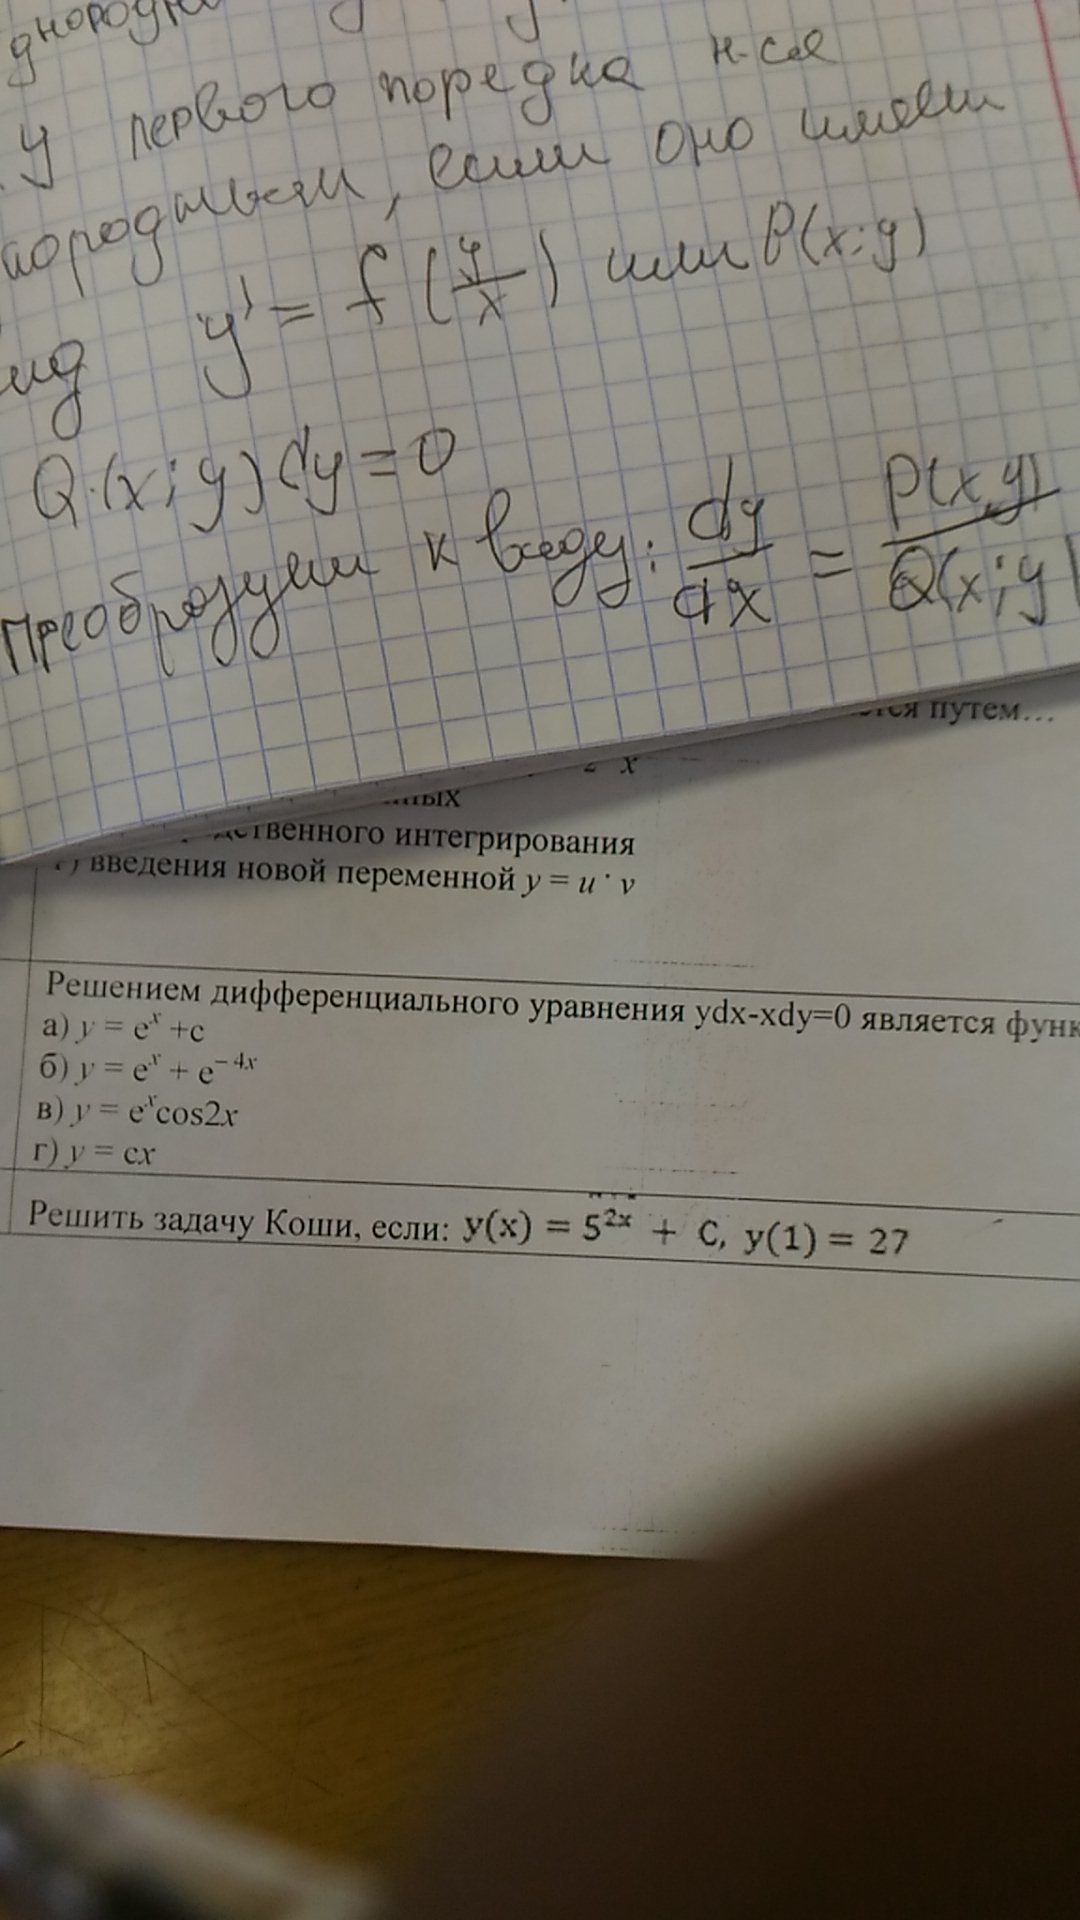 У первого порядка н-ся
если оно имеет
y' = f (y/x) или P(x;y)
Q·(x;y)dy=0
Преобразуем к виду: dy/dx = P(x,y)/Q(x;y)
путем...
2 x
интегрирования
введения новой переменной y = u · v
Решением дифференциального уравнения ydx-xdy=0 является
а) y = eˣ +c
б) y = eˣ + e⁻⁴ˣ
в) y = eˣcos2x
г) y = cx
Решить задачу Коши, если: y(x) = 5²ˣ + C, y(1) = 27